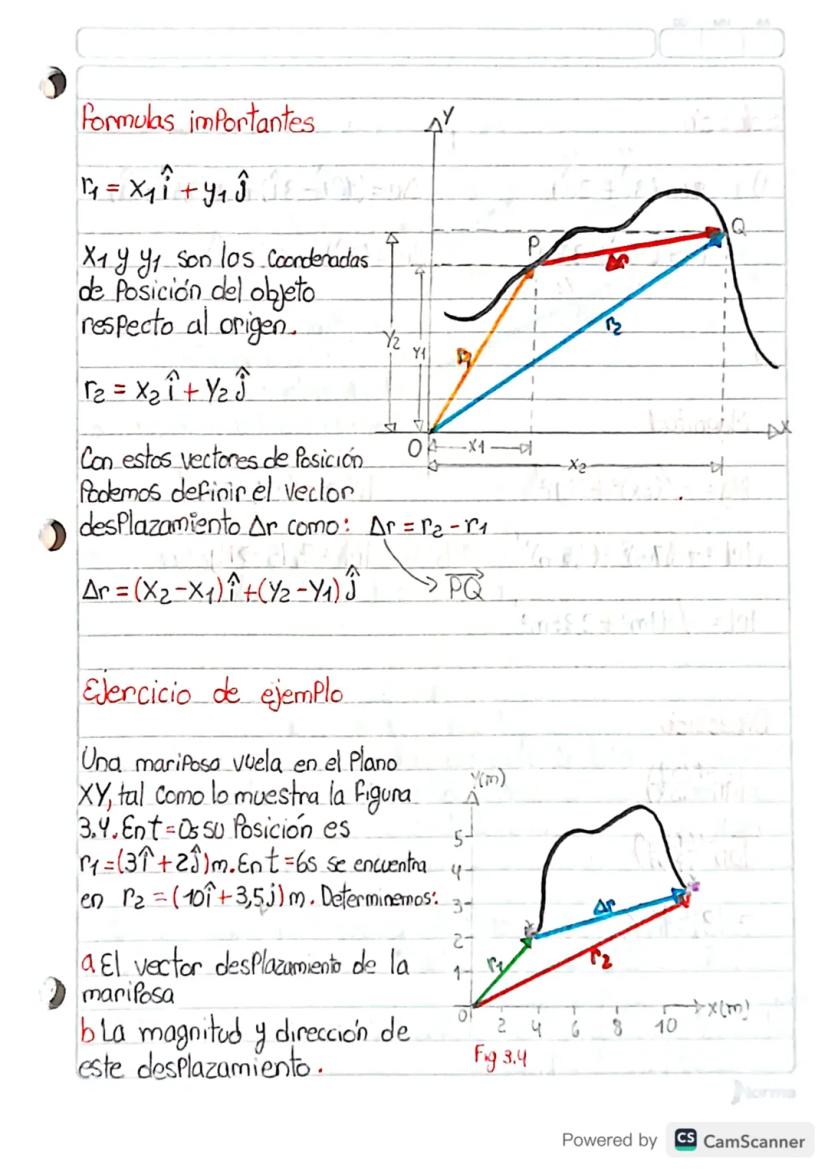 Formulas importantes
r1 = x1 î + y1 ĵ
X1 y y1 son los Coordenadas
de Posición del objeto
respecto al origen.
r2 = x2 î + Y2 ĵ
Con estos vectores de Posición
Podemos definir el vector
desplazamiento Δr como: Δr = r2 - r1
Δr = (X2-X1) î + (Y2-Y1) ĵ
PQ
Y
P
Q
Δr
r1
r2
Y2
Y1
O
X1
X2
X
Ejercicio de ejemplo
Una mariposa vuela en el Plano
XY, tal como lo muestra la figura
3.4. En t=0s su Posición es
r1=(3î+2ĵ)m. En t=6s se encuentra
en r2=(10î+3,5j)m. Determinemos:
a El vector desplazamiento de la
mariposa
b La magnitud y dirección de
este desplazamiento.
Y(m)
5
4
3
2
1
0
2 4 6 8 10
X(m)
r1
Δr
r2
Fig 3.4
Norma
Powered by CS CamScanner